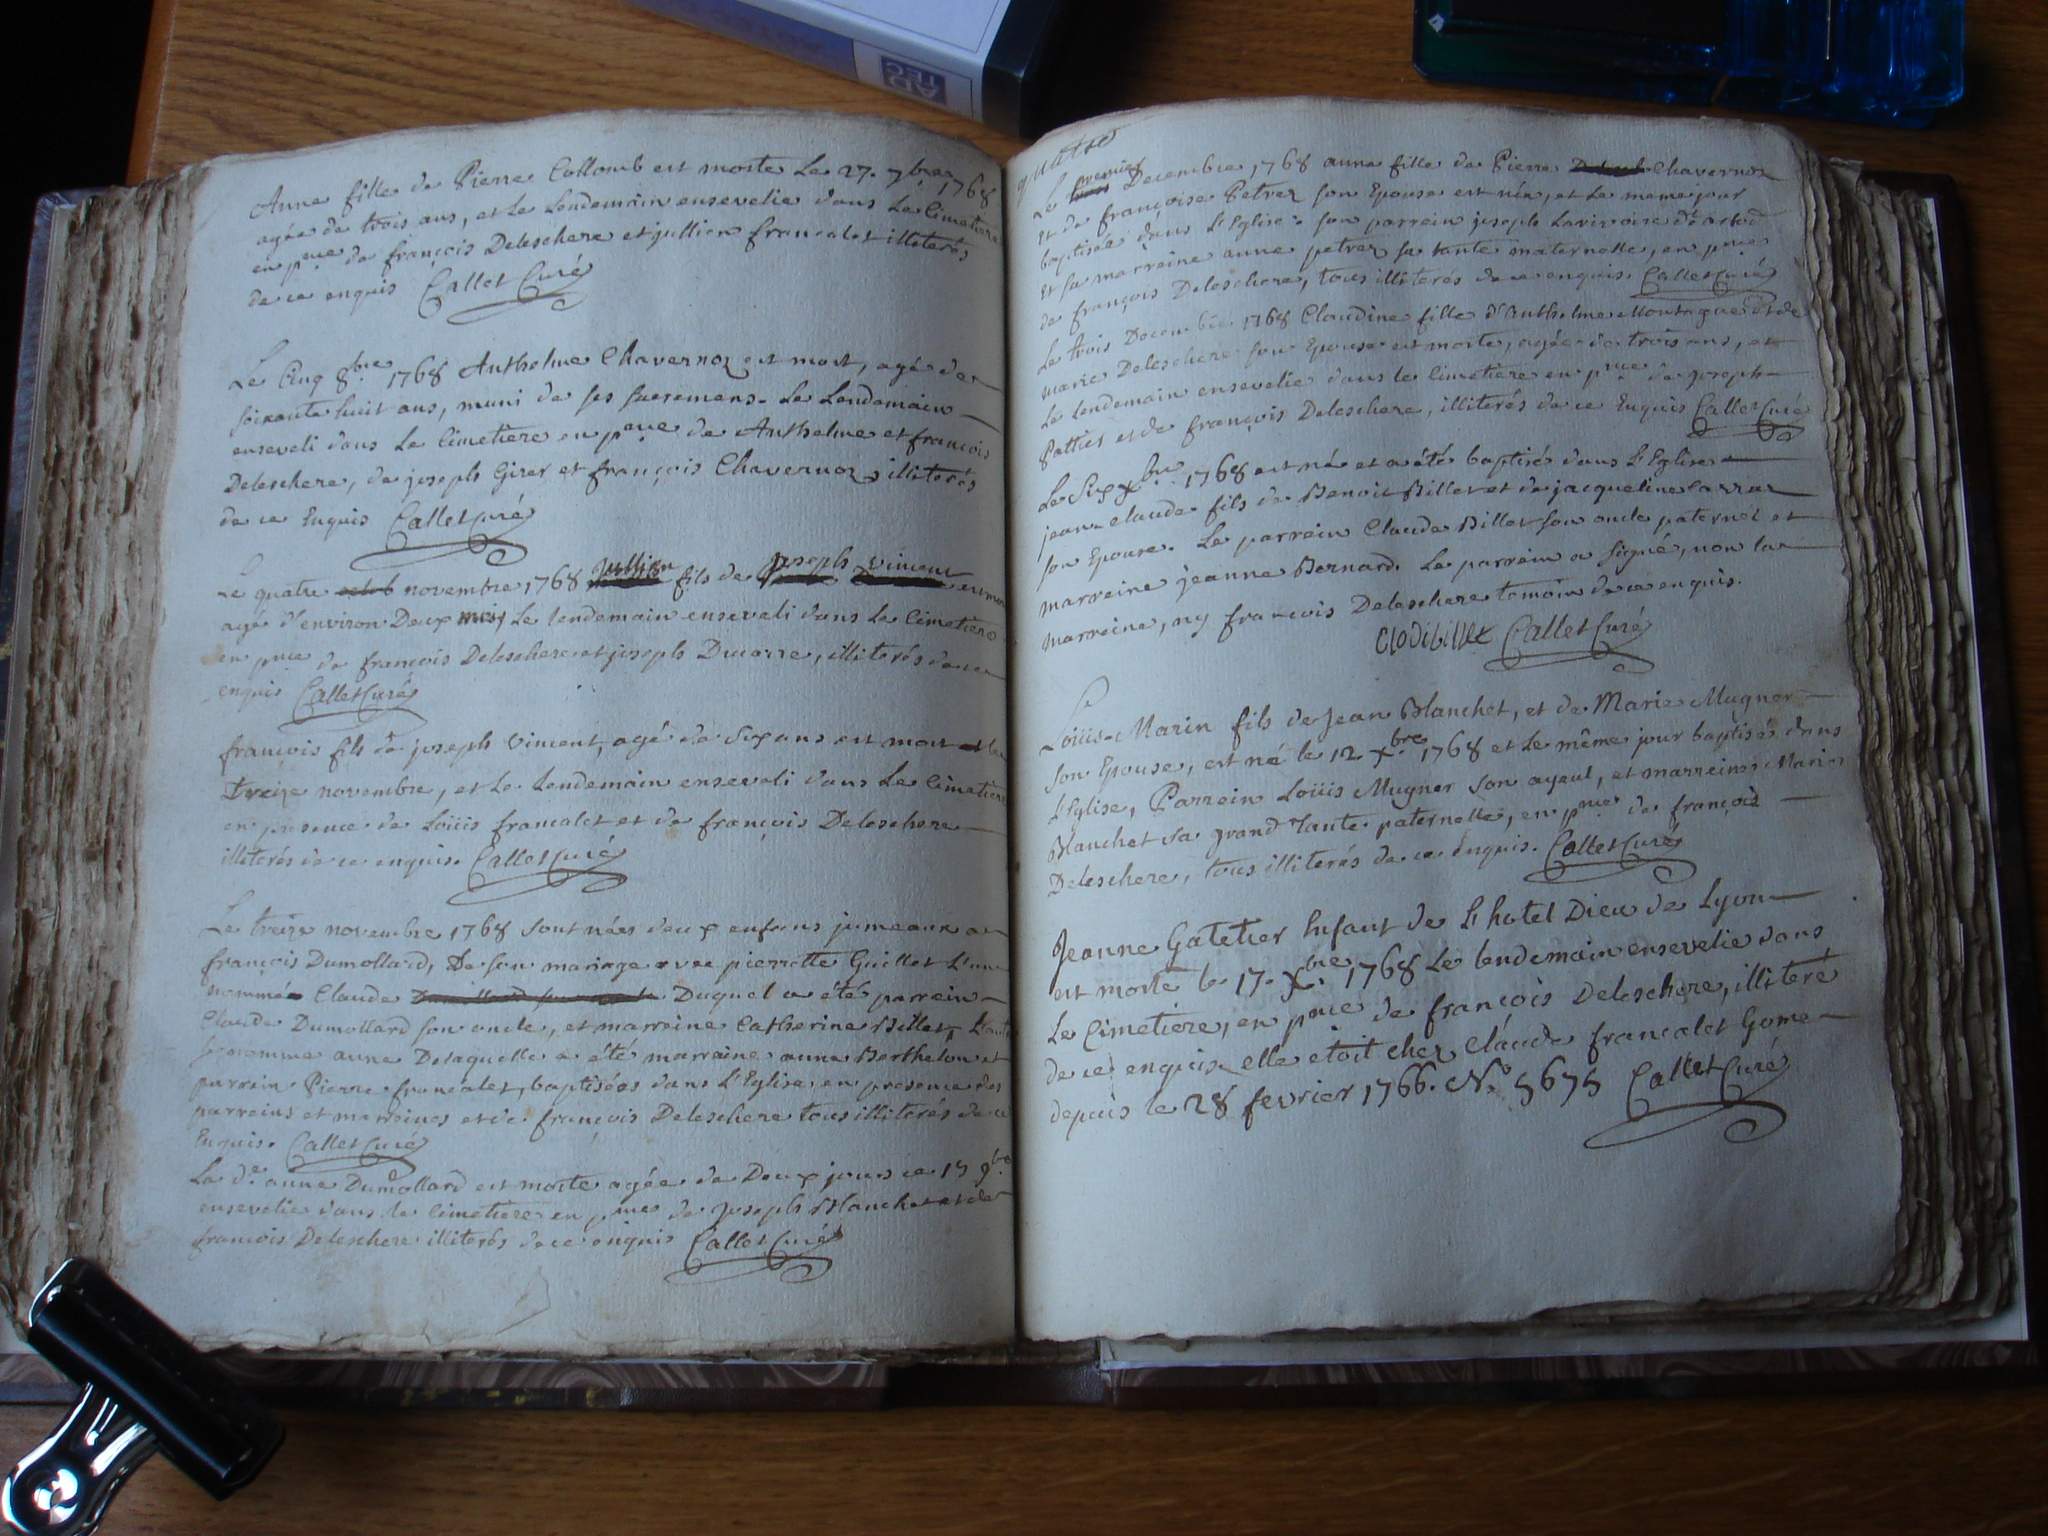 Anne fille de Pierre Collomb est morte Le 27. 7bre 1768
agée de trois ans, et Le Lendemain ensevelie dans Le Cimetiere
en pnce de françois Deleschere et jullien francalet illiterés
de ce enquis Callet Curé
Le Cinq 8bre 1768 Anthelme Chavernoz est mort, agé de
soixante huit ans, muni de ses sacremens. Le Lendemain
enseveli dans Le Cimetiere en pnce de Anthelme et françois
Deleschere, de joseph Girer et françois Chavernoz, illiterés
de ce Enquis Callet Curé
Le quatre novembre 1768 jullien fils de joseph vincent est mort
agé d'environ Deux mois, Le lendemain enseveli dans Le Cimetiere
en pnce de françois Deleschere et joseph Ducarre, illiterés de ce
enquis Callet Curé
françois fils de joseph vincent, agé de Six ans est mort le
treize novembre, et Le Lendemain enseveli dans Le Cimetiere
en presence de Loüis francalet et de françois Deleschere
illiterés de ce enquis. Callet Curé
Le treize novembre 1768 sont nées deux enfans jumeaux a
françois Dumollard, De son mariage avec pierrette Guillot L'un
nommé Claude Duquel a été parrein
Claude Dumollard son oncle, et marreine Catherine Billet, L'autre
se nomme anne Delaquelle a été marraine anne Berthelon et
parrein Pierre francalet, baptisées dans L'Eglise en presence des
parreins et marreines et de françois Deleschere tous illiterés de ce
Enquis. Callet Curé
La de. anne Dumollard est morte agée de Deux jours ce 15 9bre
ensevelie dans le Cimetiere en pnce de joseph Blanchet et de
françois Deleschere illiterés de ce enquis Callet Curé
quatre
Le premier Decembre 1768 anne fille de Pierre Chavernoz
et de françoise Petrez son Epouse est née, et le meme jour
baptisée dans L'Eglise: son parrein joseph Lavivroire
et sa marreine anne petrez sa tante maternelle, en pnce
de françois Deleschere, tous illiterés de ce enquis. Callet Curé
Le trois Decembre 1768 Claudine fille d'Anthelme Montagne et de
marie Deleschere son Epouse est morte, agée de trois ans, et
Le lendemain ensevelie dans le Cimetiere en pnce de joseph
Pattier et de françois Deleschere, illiterés de ce Enquis Callet Curé
Le Six Xbre 1768 est né et a été baptisé dans L'Eglise
jean-claude fils de Benoit Billet et de jacqueline
son Epouse. Le parrein Claude Billet son oncle paternel et
marreine jeanne Bernard. Le parrein a signé, non la
marreine, ny françois Deleschere temoin de ce enquis.
Clodibillet Callet Curé
Loüis-Marin fils de Jean Blanchet, et de Marie Mugner
son Epouse, est né le 12 Xbre 1768 et le même jour baptisé dans
L'Eglise, Parrein Loüis Mugner son ayeul, et marreine Marie
Blanchet sa grand Tante paternelle, en pnce de françois
Deleschere, tous illiterés de ce Enquis. Callet Curé
Jeanne Gatetier Enfant de L'hotel Dieu de Lyon
est morte le 17. Xbre 1768 Le lendemain ensevelie dans
Le Cimetiere, en pnce de françois Deleschere, illiteré
de ce enquis, elle etoit chez Claude francalet Gome
depuis le 28 fevrier 1766. No. 5675 Callet Curé